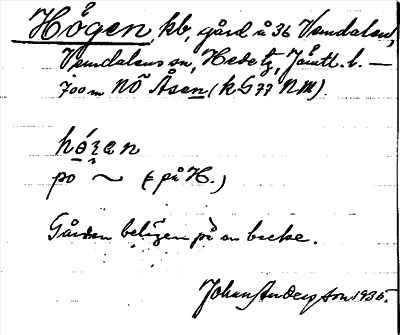 Högen, kb, gård å 36 Vemdalen,
Vemdalens sn, Hede tg, Jämtl. l. —
700 m NÖ Åsen (k G77 NM).
hö́ɀen
po ~ ( på H.)
Gården belägen på en backe.
Johan Andersson 1935.